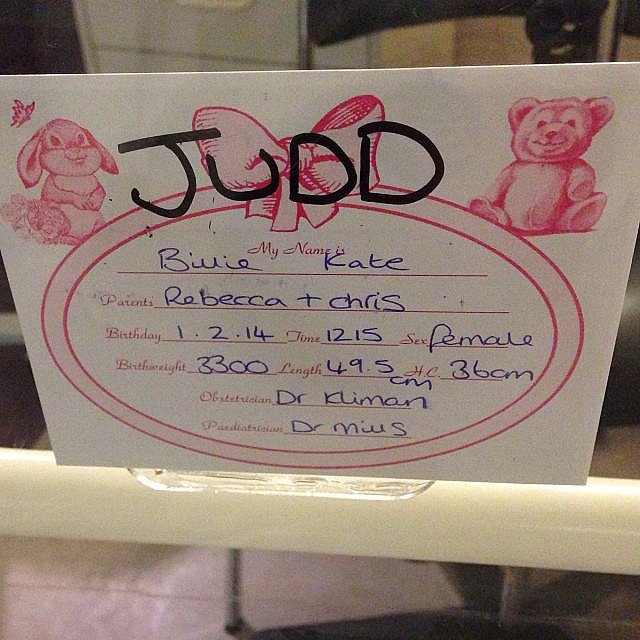 JUDD
My Name is
Billie Kate
Parents Rebecca + Chris
Birthday 1.2.14 Time 1215 Sex female
Birthweight 3300 Length 49.5 cm H.C. 36cm
Obstetrician Dr Kliman
Paediatrician Dr Mills